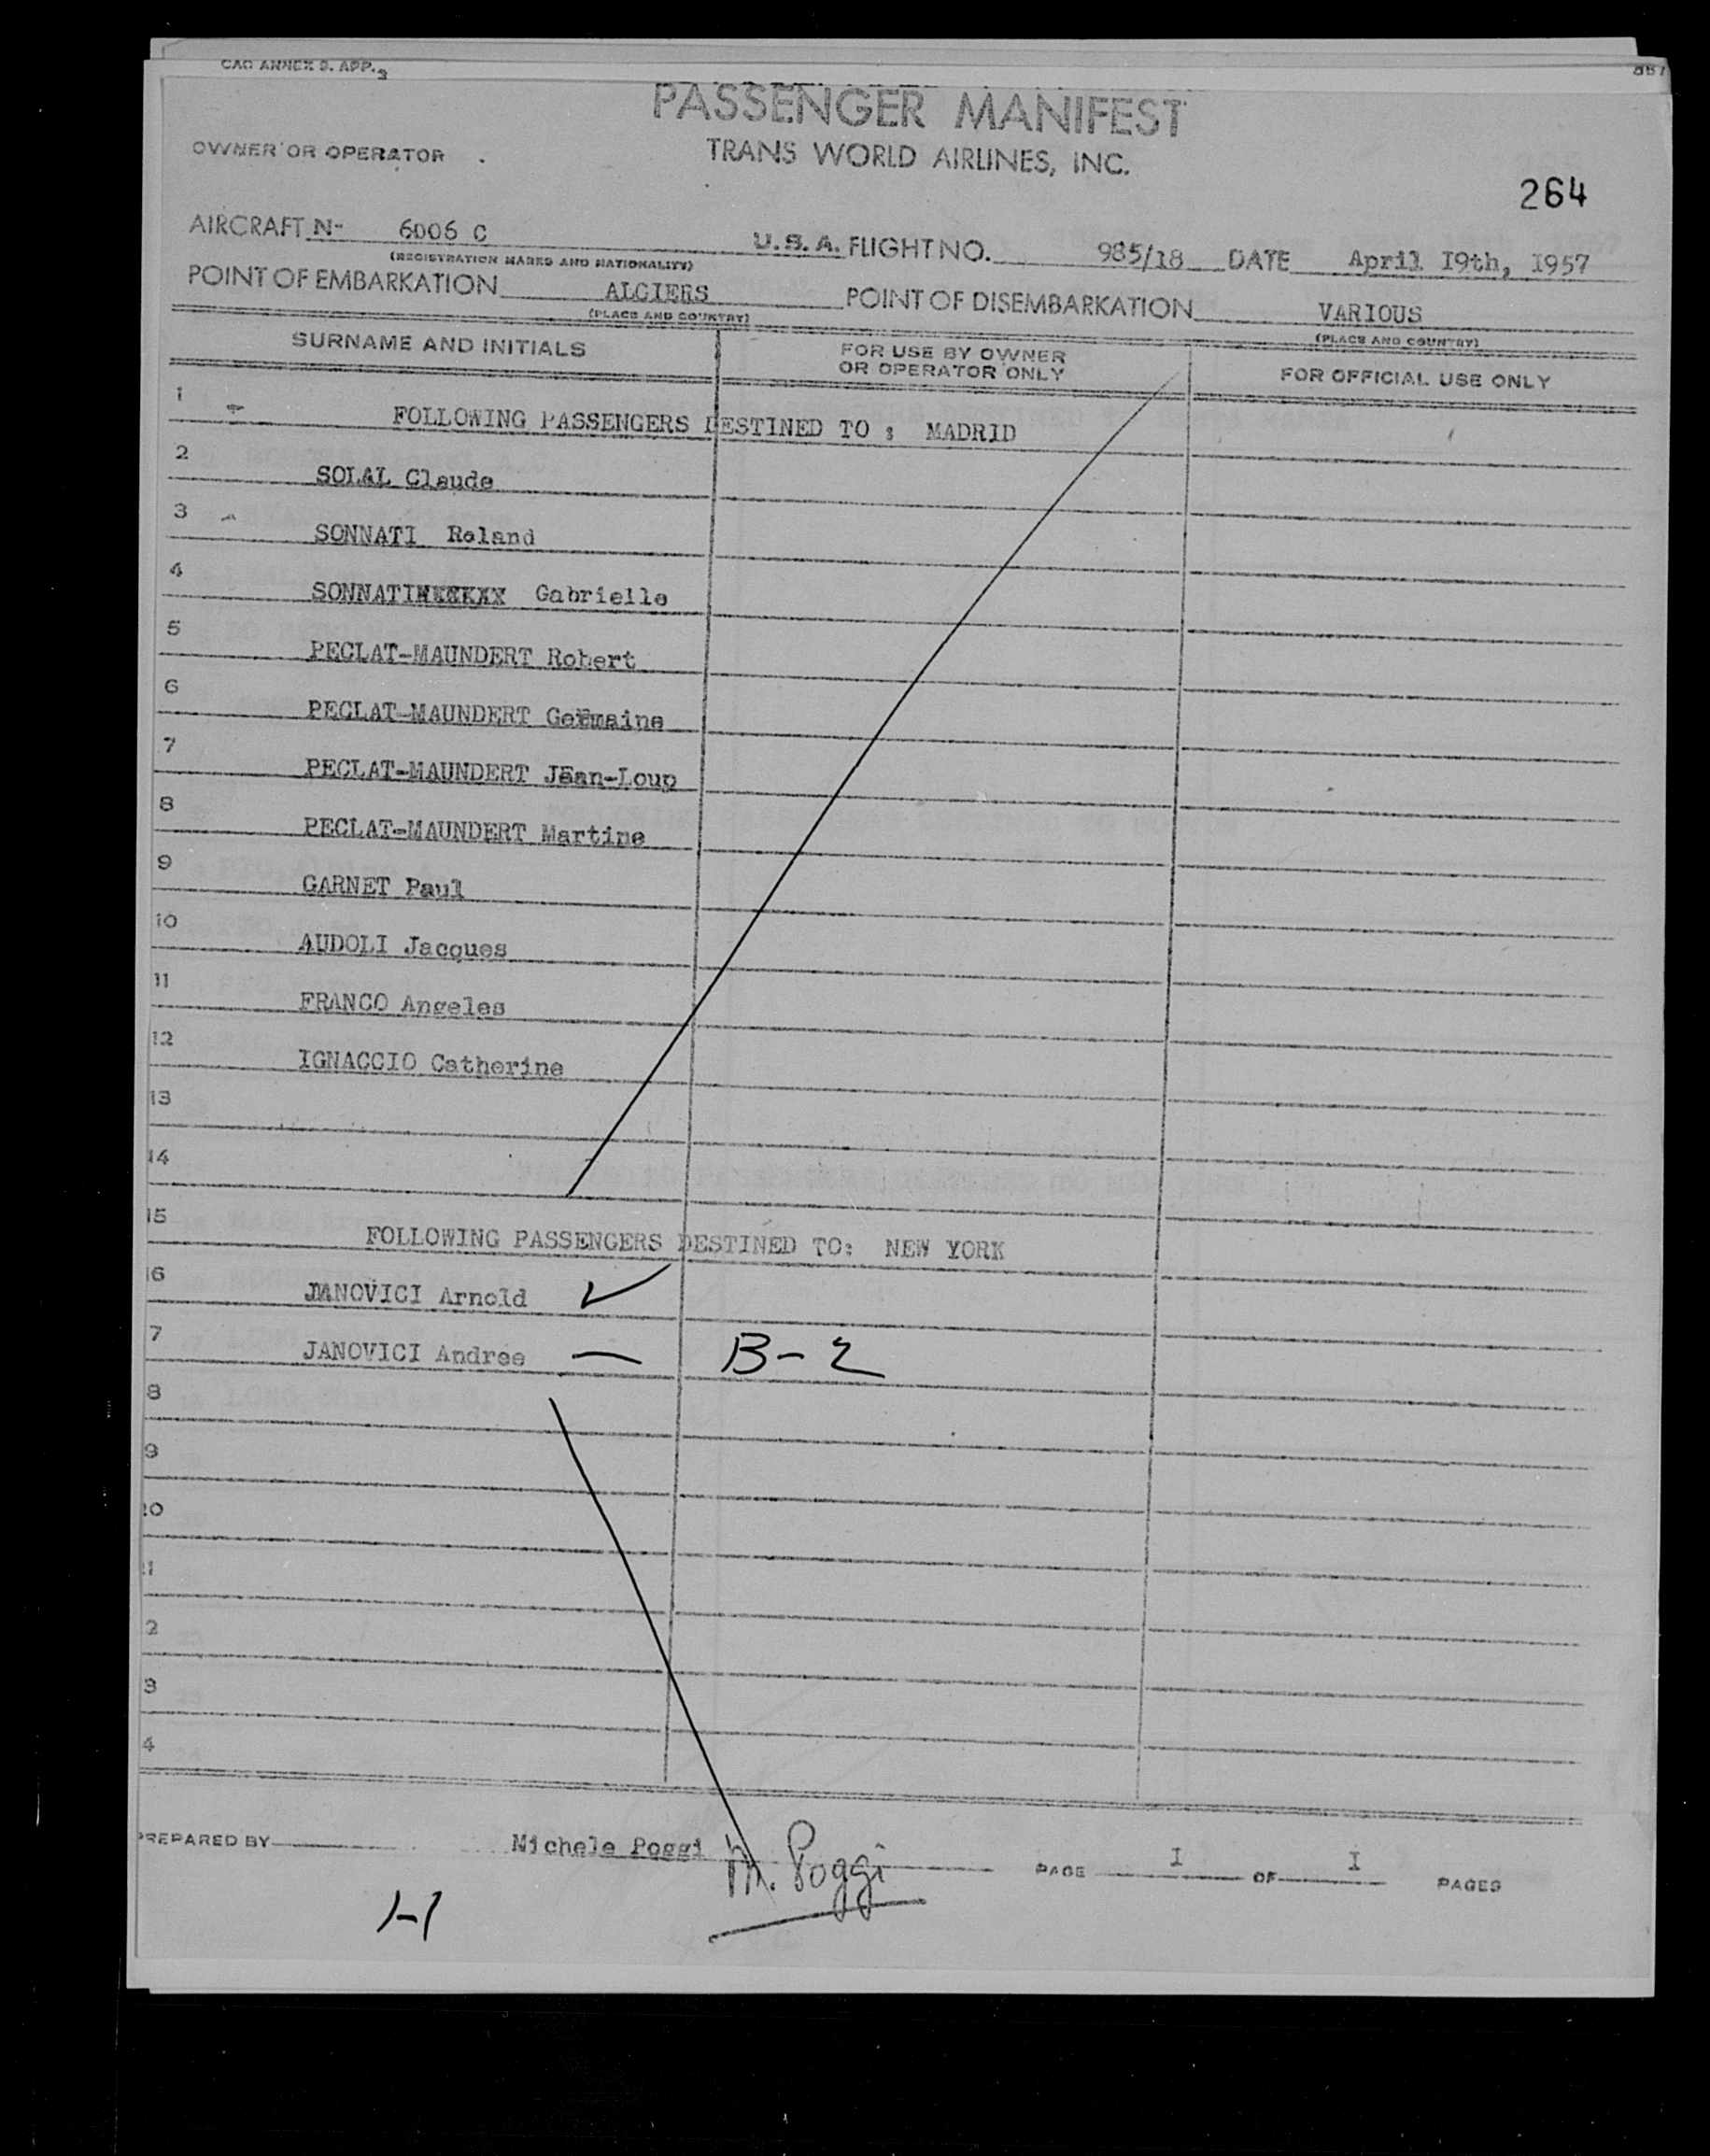 CAO ANNEX 9. APP. 3
PASSENGER MANIFEST
OWNER OR OPERATOR TRANS WORLD AIRLINES, INC.
264
AIRCRAFT N- 6006 C U.S.A. FLIGHT NO. 985/I8 DATE April I9th, I957
(REGISTRATION MARKS AND NATIONALITY)
POINT OF EMBARKATION ALGIERS POINT OF DISEMBARKATION VARIOUS
(PLACE AND COUNTRY) (PLACE AND COUNTRY)
SURNAME AND INITIALS FOR USE BY OWNER OR OPERATOR ONLY FOR OFFICIAL USE ONLY
1 FOLLOWING PASSENGERS DESTINED TO : MADRID
2 SOLAL Claude
3 SONNATI Roland
4 SONNATI Gabrielle
5 PECLAT-MAUNDERT Robert
6 PECLAT-MAUNDERT Germaine
7 PECLAT-MAUNDERT Jean-Loup
8 PECLAT-MAUNDERT Martine
9 GARNET Paul
10 AUDOLI Jacques
11 FRANCO Angeles
12 IGNACCIO Catherine
13
14
15 FOLLOWING PASSENGERS DESTINED TO: NEW YORK
16 JANOVICI Arnold ✓
7 JANOVICI Andree — B-2
8
9
20
21
2
3
4
PREPARED BY Michele Poggi M. Poggi PAGE I OF I PAGES